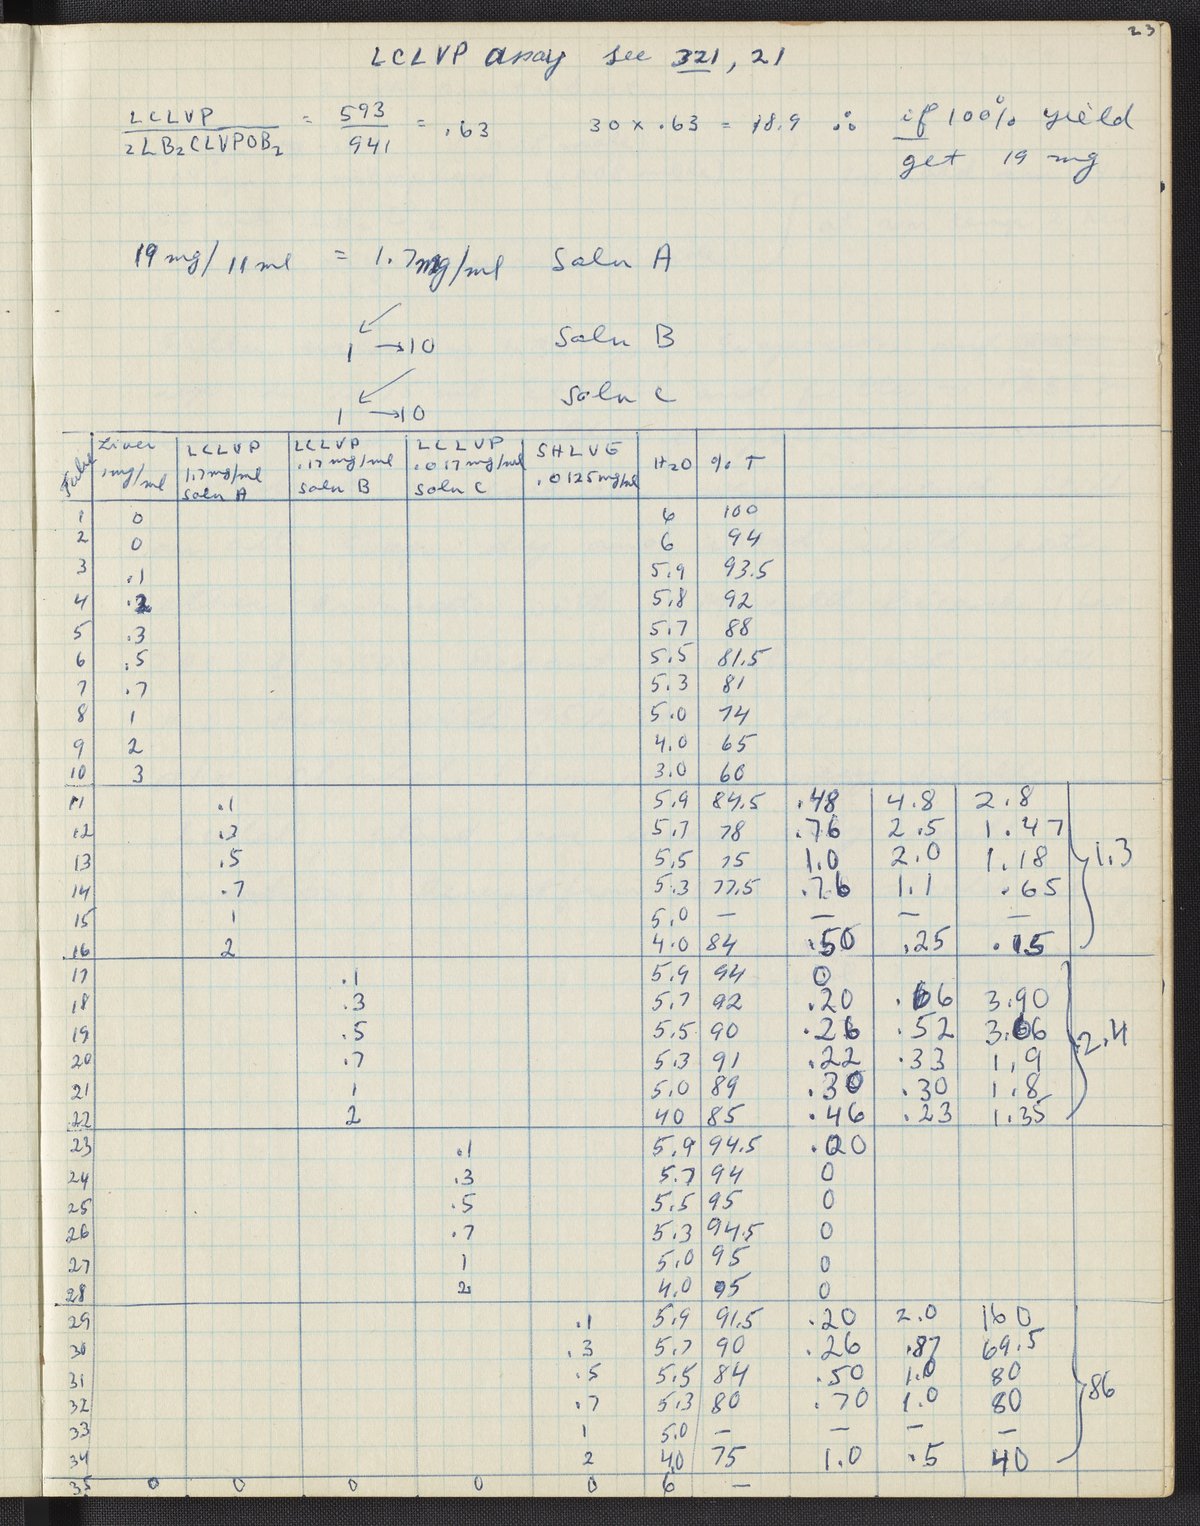 23
LCLVP assay see 321, 21
LCLVP / 2LB₂CLVPOB₂ = 593 / 941 = .63 30 x .63 = 18.9 ∴ if 100% yield
get 19 mg
19 mg/11 ml = 1.7 mg/ml Soln A
1 → 10 Soln B
1 → 10 Soln C
Tube | Liver 1mg/ml | LCLVP 1.7mg/ml soln A | LCLVP .17mg/ml soln B | LCLVP .017mg/ml soln C | SHLVE .0125mg/ml | H₂O | % T
1 0 6 100
2 0 6 94
3 .1 5.9 93.5
4 .2 5.8 92
5 .3 5.7 88
6 .5 5.5 81.5
7 .7 5.3 81
8 1 5.0 74
9 2 4.0 65
10 3 3.0 60
11 .1 5.9 84.5 .48 4.8 2.8
12 .3 5.7 78 .76 2.5 1.47
13 .5 5.5 75 1.0 2.0 1.18 } 1.3
14 .7 5.3 77.5 .76 1.1 .65
15 1 5.0 — — — —
16 2 4.0 84 .50 .25 .15
17 .1 5.9 94 0
18 .3 5.7 92 .20 .66 3.90
19 .5 5.5 90 .26 .52 3.06 } 2.4
20 .7 5.3 91 .22 .33 1.9
21 1 5.0 89 .30 .30 1.8
22 2 40 85 .46 .23 1.35
23 .1 5.9 94.5 .00
24 .3 5.7 94 0
25 .5 5.5 95 0
26 .7 5.3 94.5 0
27 1 5.0 95 0
28 2 4.0 95 0
29 .1 5.9 91.5 .20 2.0 160
30 .3 5.7 90 .26 .87 69.5
31 .5 5.5 84 .50 1.0 80 } 86
32 .7 5.3 80 .70 1.0 80
33 1 5.0 — — — —
34 2 4.0 75 1.0 .5 40
35 0 0 0 0 0 6 —